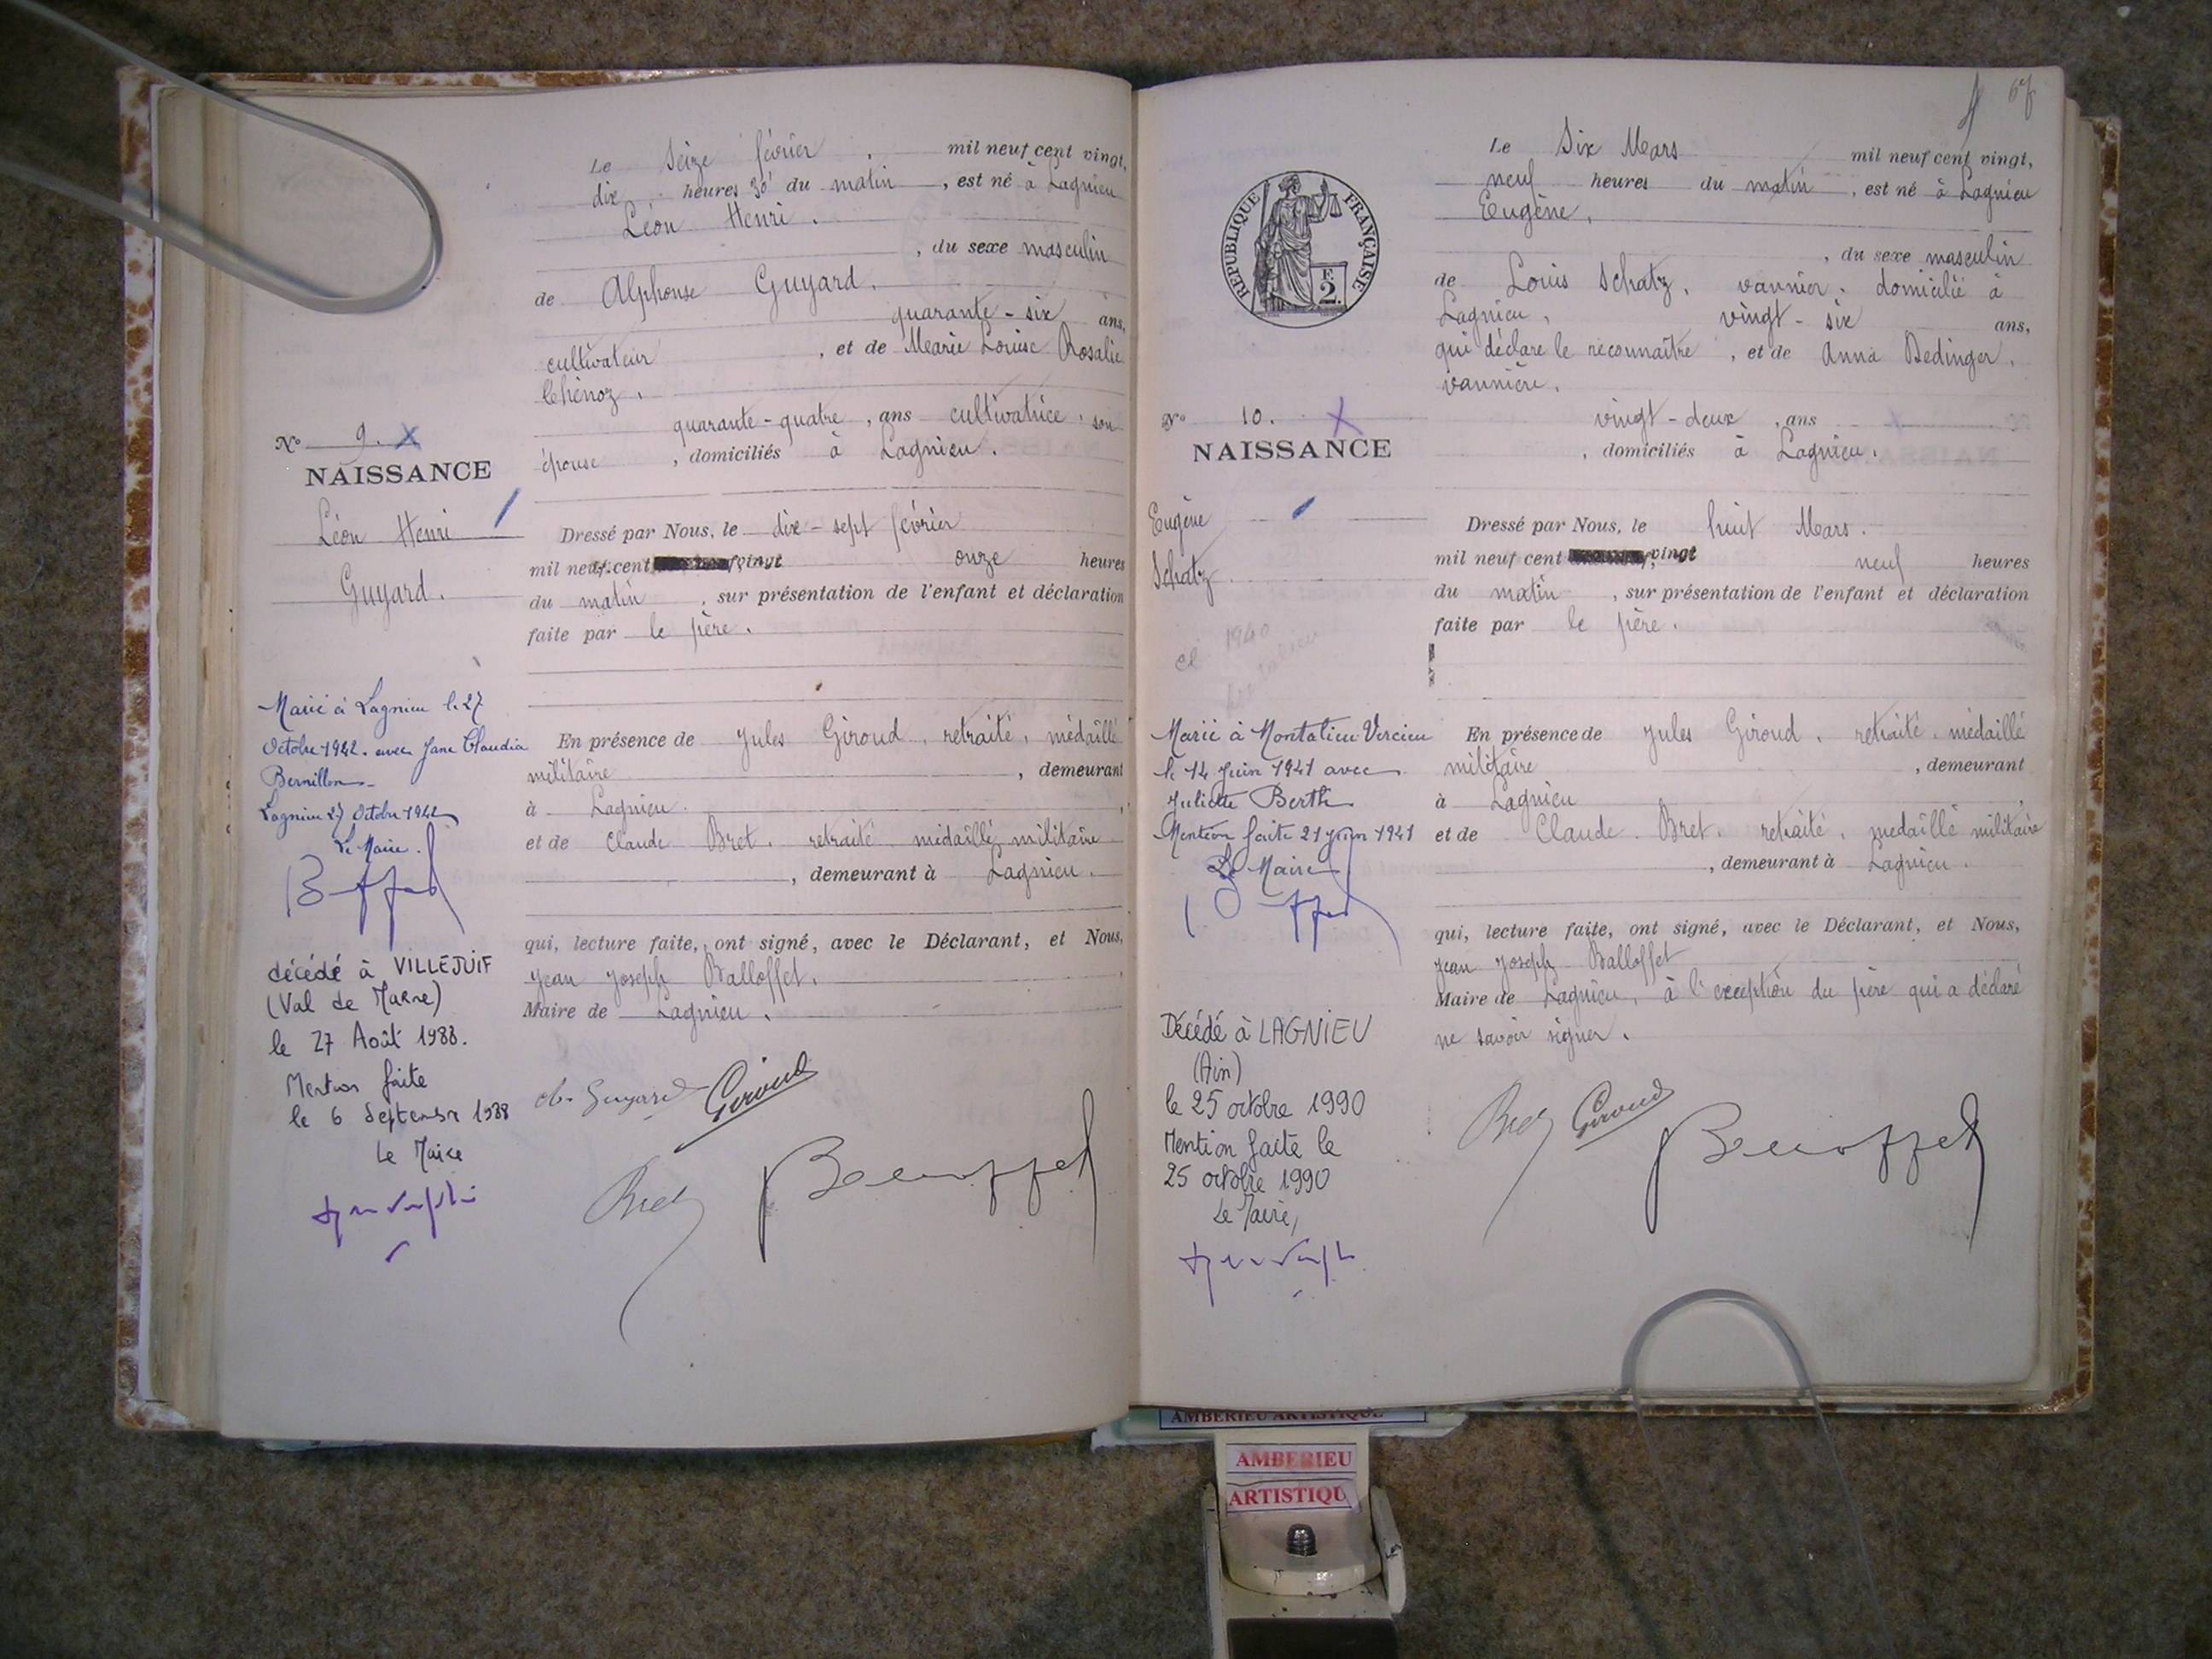 Le Seize février mil neuf cent vingt,
dix heures 30' du matin, est né à Lagnieu
Léon Henri.
, du sexe masculin
de Alphonse Guyard.
quarante-six ans,
cultivateur, et de Marie Louise Rosalie
quarante-quatre, ans cultivatrice, son
épouse, domiciliés à Lagnieu.
N° 9. X
NAISSANCE
Léon Henri
Guyard.
Dressé par Nous, le dix-sept février
mil neuf cent vingt onze heures
du matin, sur présentation de l'enfant et déclaration
faite par le père.
Marié à Lagnieu le 27
Octobre 1942. avec Jane Claudia
Bernillon
Lagnieu 27 Octobre 1942
Le Maire.
En présence de Jules Giroud, retraité, médaillé
militaire, demeurant
à Lagnieu.
et de Claude Bret. retraité médaillé militaire
, demeurant à Lagnieu.
qui, lecture faite, ont signé, avec le Déclarant, et Nous,
Jean Joseph Balloffet.
Maire de Lagnieu.
décédé à VILLEJUIF
(Val de Marne)
le 27 Août 1988.
Mention faite
le 6 Septembre 1988
Le Maire
Guyard Giroud
Bret
67
Le Six Mars mil neuf cent vingt,
neuf heures du matin, est né à Lagnieu
Eugène,
, du sexe masculin
de Louis Schatz, vannier, domicilié à
Lagnieu, vingt-six ans,
qui déclare le reconnaître, et de Anna Dedinger,
vannière,
vingt-deux, ans
, domiciliés à Lagnieu.
REPUBLIQUE FRANÇAISE
F.
2.
N° 10. X
NAISSANCE
Eugène
Schatz
1940
Dressé par Nous, le huit Mars.
mil neuf cent vingt neuf heures
du matin, sur présentation de l'enfant et déclaration
faite par le père.
Marié à Montalieu Vercieu
le 14 Juin 1941 avec
Juliette Berth
Mention faite 21 juin 1941
Le Maire
En présence de Jules Giroud, retraité, médaillé
militaire, demeurant
à Lagnieu
et de Claude Bret. retraité, médaillé militaire
, demeurant à Lagnieu.
qui, lecture faite, ont signé, avec le Déclarant, et Nous,
Jean Joseph Balloffet
Maire de Lagnieu, à l'exception du père qui a déclaré
ne savoir signer.
Décédé à LAGNIEU
(Ain)
le 25 octobre 1990
Mention faite le
25 octobre 1990
Le Maire,
Bret Giroud
AMBERIEU ARTISTIQUE
AMBERIEU
ARTISTIQU